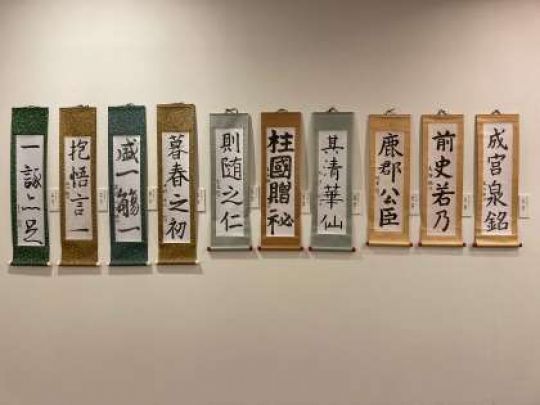 成宮泉銘
前史若乃
鹿郡公臣
其清華仙
柱國贈秘
則随之仁
暮春之初
盛一觴一
抱悟言一
一詠亦足